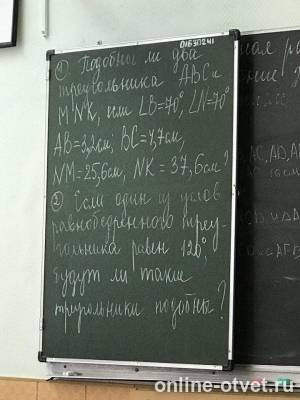 ① Подобны ли два
треугольника ABC и
MNK, если ∠B=70°, ∠N=70°
AB=3,2см; BC=4,7см,
NM=25,6см; NK=37,6см?
② Если один из углов
равнобедренного треу-
гольника равен 120°
будут ли такие
треугольники подобны?
online-otvet.ru